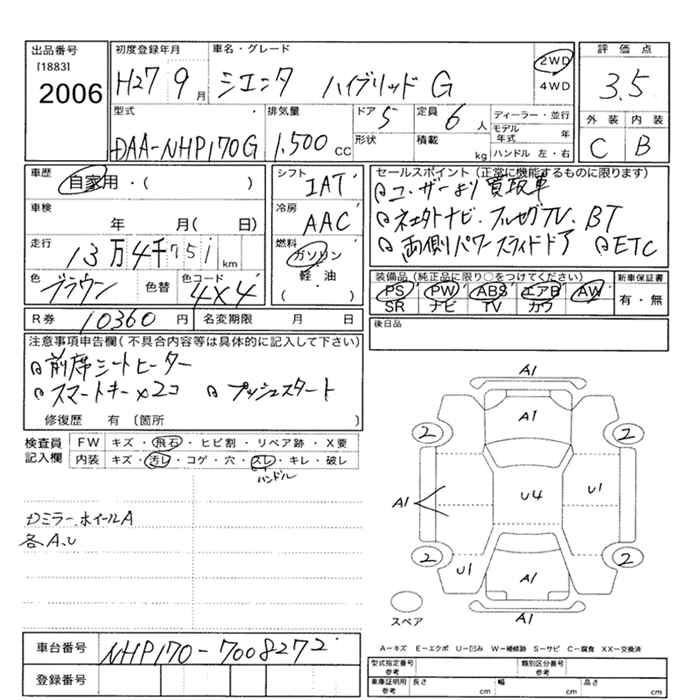 出品番号
[1883]
2006
初度登録年月
H27 9月
車名・グレード
シエンタ ハイブリッド G
2WD
4WD
評価点
3.5
外装 内装
C B
型式
DAA-NHP170G
排気量
1,500 CC
ドア 5
形状
定員 6 人
積載 kg
ディーラー・並行
モデル年式 年
ハンドル 左・右
車歴
自家用・( )
車検
年 月( 日)
走行
13万4千751 km
色
ブラウン
色替
色コード
4X4
シフト
IAT
冷房
AAC
燃料
ガソリン
軽・油
・( )
セールスポイント(正常に機能するものに限ります)
ユーザーより買取車
ネエクトナビ・フルセグTV・BT
両側パワースライドドア ETC
装備品(純正品に限り○をつけてください)
PS PW ABS エアB AW
SR ナビ TV カワ
新車保証書
有・無
後日品
R券 10360 円
名変期限 月 日
注意事項申告欄(不具合内容等は具体的に記入して下さい)
前席シートヒーター
スマートキーx2コ プッシュスタート
修復歴 有 〔箇所 〕
検査員記入欄
FW キズ・飛石・ヒビ割・リペア跡・X要
内装 キズ・汚レ・コゲ・穴・スレ・キレ・破レ
ハンドル
Dミラー、ホイールA
各A、U
A1
A1
2 2
A1
U4
U1
2 2
U1
A1
A1
スペア
車台番号
NHP170-7008272
登録番号
A－キズ E－エクボ U－凹み W－補修跡 S－サビ C－腐食 XX－交換済
型式指定番号
参考
類別区分番号
参考
車庫証明用
参考
長さ cm
幅 cm
高さ cm